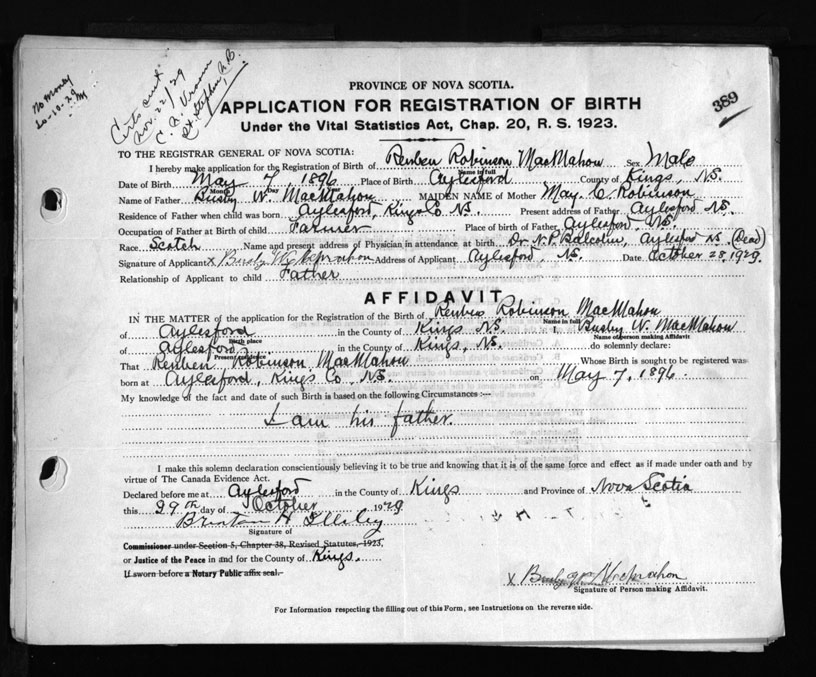 No money
20-10-29
Certs sent
Nov. 22/29
C. A. Vroom
St. Stephen, N.B.
389
PROVINCE OF NOVA SCOTIA.
APPLICATION FOR REGISTRATION OF BIRTH
Under the Vital Statistics Act, Chap. 20, R. S. 1923.
TO THE REGISTRAR GENERAL OF NOVA SCOTIA:
I hereby make application for the Registration of Birth of Reuben Robinson MacMahon Sex Male
Name in full
Date of Birth May 7 1896 Place of Birth Aylesford County of Kings, N.S.
Month Day Year
Name of Father Busby W. MacMahon MAIDEN NAME of Mother May. C. Robinson
Residence of Father when child was born Aylesford, Kings Co. N.S. Present address of Father Aylesford N.S.
Occupation of Father at Birth of child Farmer Place of birth of Father Aylesford. N.S.
Race Scotch Name and present address of Physician in attendance at birth Dr. N. P. Balcolm, Aylesford N.S. (Dead)
Signature of Applicant x Busby Wm MacMahon Address of Applicant Aylesford, N.S. Date October 28, 1929.
Relationship of Applicant to child Father
AFFIDAVIT
IN THE MATTER of the application of the Registration of the Birth of Reuben Robinson MacMahon
Name in full
of Aylesford in the County of Kings N.S. I, Busby W. MacMahon
Birth place Name of person making Affidavit
of Aylesford, in the County of Kings, N.S. do solemnly declare:
Present residence
That Reuben Robinson MacMahon Whose Birth is sought to be registered was
born at Aylesford, Kings Co. N.S. on May 7, 1896.
My knowledge of the fact and date of such Birth is based on the following Circumstances :—
I am his father.
I make this solemn declaration conscientiously believing it to be true and knowing that it is of the same force and effect as if made under oath and by
virtue of The Canada Evidence Act.
Declared before me at Aylesford in the County of Kings and Province of Nova Scotia
this 29th day of October 1929
Brinton H
Signature of
Commissioner under Section 5, Chapter 38, Revised Statutes, 1923,
or Justice of the Peace in and for the County of Kings.
If sworn before a Notary Public affix seal.
x Busby Wm MacMahon
Signature of Person making Affidavit.
For Information respecting the filling out of this Form, see Instructions on the reverse side.